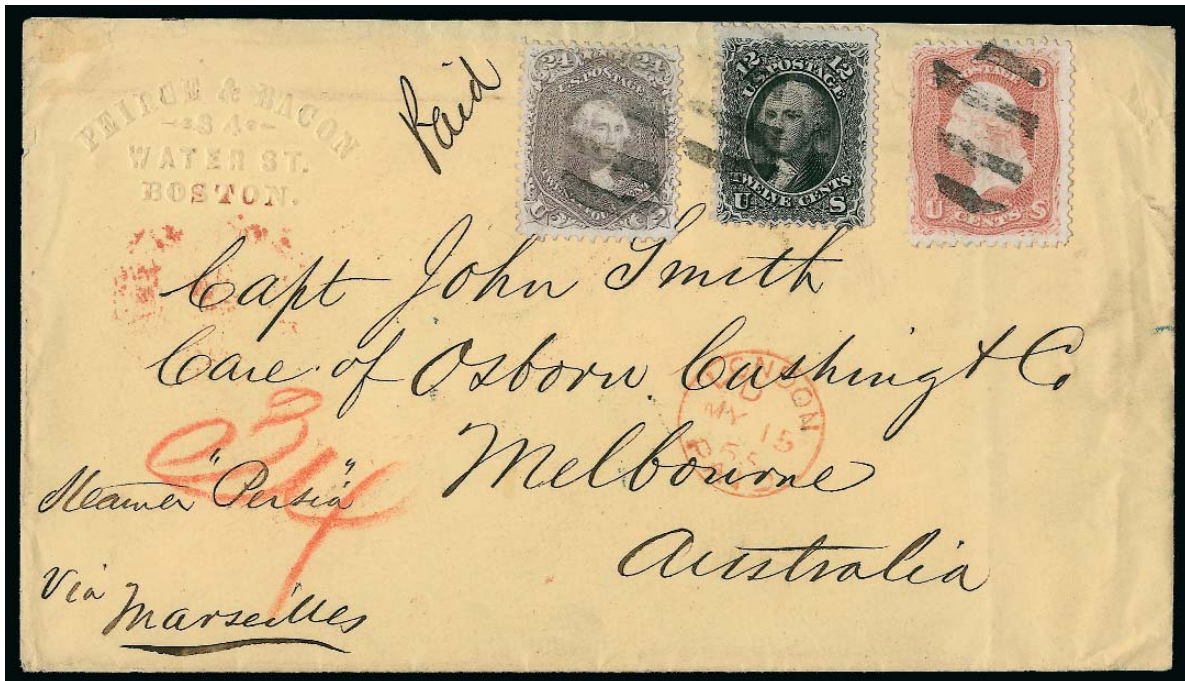 PEIRCE & BACON
84
WATER ST.
BOSTON.
Paid
24 U.S. POSTAGE 24
U S
12 U.S. POSTAGE 12
TWELVE CENTS
U S
U CENTS S
Capt John Smith
Care of Osborn Cushing & Co
Melbourne
Australia
LONDON
MY 15
PAID
34
Steamer "Persia"
Via
Marseilles